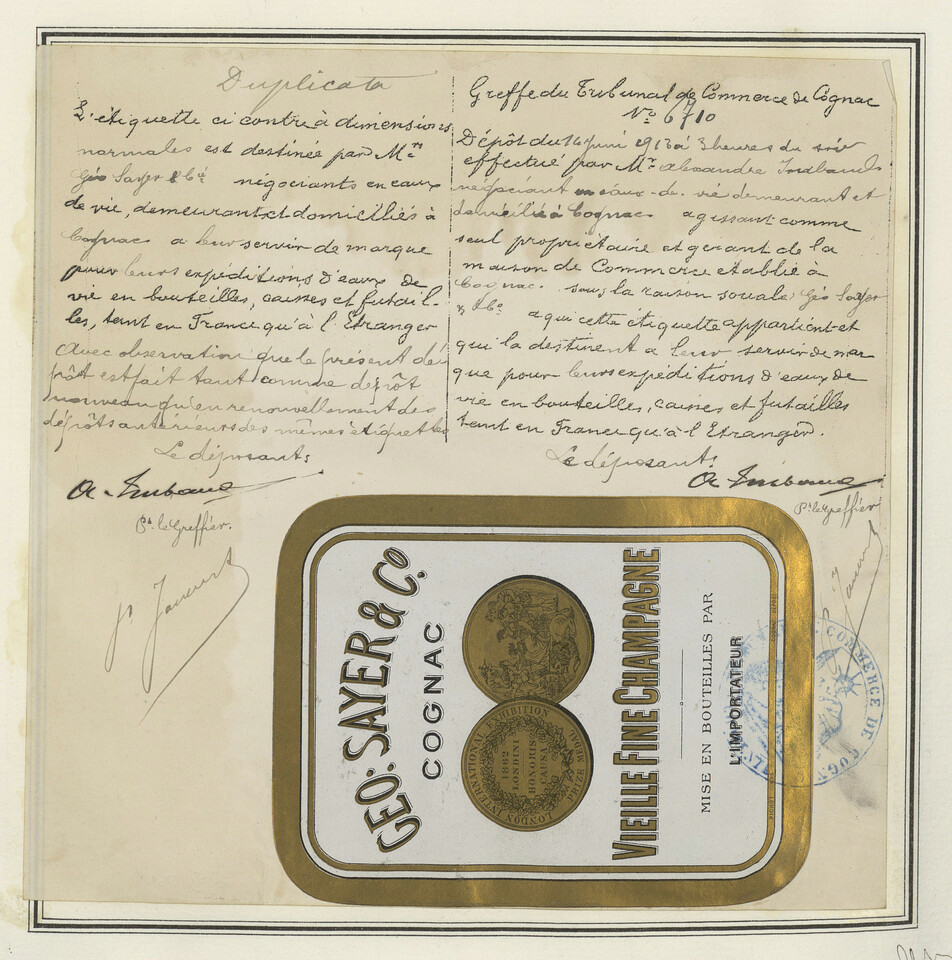 Duplicata
L'étiquette ci contre à dimensions
normales est destinée par Mrs
Géo Sayer & Cie négociants en eaux
de vie, demeurant et domiciliés à
Cognac a leur servir de marque
pour leurs expéditions d'eaux de
vie en bouteilles, caisses et futail-
les, tant en France qu'à l'Etranger
Avec observation que le présent dé
pôt est fait tant comme dépôt
nouveau qu'en renouvellement des
dépôts antérieurs des mêmes étiquettes
Le déposants
Pr. le Greffier.
Greffe du Tribunal de Commerce de Cognac
No 6710
Dépôt du 14 Juin 1913 à 3 heures du soir
effectué par Mr Alexandre
négociant en eaux-de-vie demeurant et
domicilié à Cognac agissant comme
seul propriétaire et gérant de la
maison de Commerce établie à
Cognac. sous la raison sociale Géo Sayer
& Co a qui cette étiquette appartient et
qui la destinent a leur servir de mar
que pour leurs expéditions d'eaux de
vie en bouteilles, caisses et futailles
tant en France qu'à l'Etranger.
Le déposants
Pr. le Greffier
GEO: SAYER & Co.
COGNAC
LONDON INTERNATIONAL EXHIBITION PRIZE MEDAL
1862
LONDINI
HONORIS
CAUSA
VIEILLE FINE CHAMPAGNE
MISE EN BOUTEILLES PAR
L'IMPORTATEUR
COMMERCE DE COGN